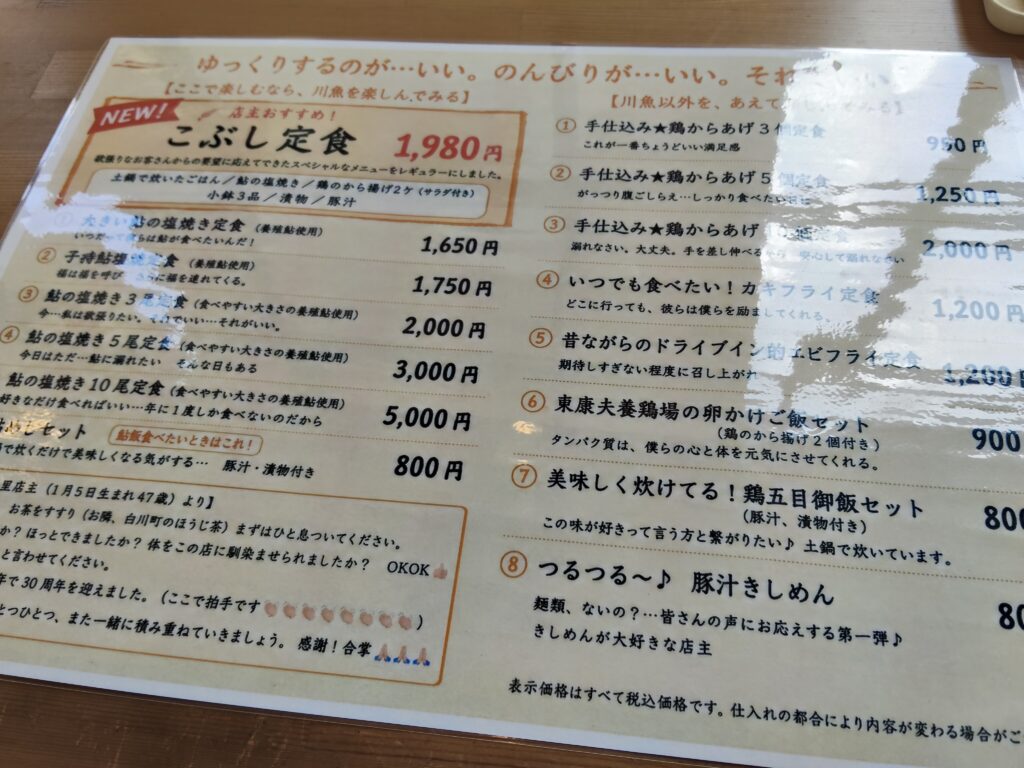 ゆっくりするのが…いい。のんびりが…いい。それ
【ここで楽しむなら、川魚を楽しんでみる】
NEW!
店主おすすめ！
こぶし定食 1,980円
欲張りなお客さんからの要望に応えてできたスペシャルなメニューをレギュラーにしました。
土鍋で炊いたごはん／鮎の塩焼き／鶏のから揚げ2ケ（サラダ付き）
小鉢3品／漬物／豚汁
① 大きい鮎の塩焼き定食（養殖鮎使用） 1,650円
いつだって僕らは鮎が食べたいんだ！
② 子持鮎塩焼定食（養殖鮎使用） 1,750円
福は福を呼び さらに福を連れてくる。
③ 鮎の塩焼き3尾定食（食べやすい大きさの養殖鮎使用） 2,000円
今…私は欲張りたい。それでいい…それがいい。
④ 鮎の塩焼き5尾定食（食べやすい大きさの養殖鮎使用） 3,000円
今日はただ…鮎に溺れたい そんな日もある
鮎の塩焼き10尾定食（食べやすい大きさの養殖鮎使用） 5,000円
好きなだけ食べればいい…年に1度しか食べないのだから
めしセット 鮎飯食べたいときはこれ！ 800円
で炊くだけで美味しくなる気がする… 豚汁・漬物付き
里店主（1月5日生まれ47歳）より】
お茶をすすり（お隣、白川町のほうじ茶）まずはひと息ついてください。
か？ほっとできましたか？体をこの店に馴染ませられましたか？ OKOK👍
と言わせてください。
年で30周年を迎えました。（ここで拍手です👏👏👏👏👏👏👏👏）
とつひとつ、また一緒に積み重ねていきましょう。感謝！合掌🙏🙏🙏
【川魚以外を、あえて
① 手仕込み★鶏からあげ3個定食 950円
これが一番ちょうどいい満足感
② 手仕込み★鶏からあげ5個定食 1,250円
がっつり腹ごしらえ…しっかり食べたい
③ 手仕込み★鶏からあげ10個定食 2,000円
溺れなさい。大丈夫。手を差し伸べるから 安心して溺れなさい
④ いつでも食べたい！カキフライ定食 1,200円
どこに行っても、彼らは僕らを励ましてくれる。
⑤ 昔ながらのドライブイン的エビフライ定食 1,200円
期待しすぎない程度に召し上がれ
⑥ 東康夫養鶏場の卵かけご飯セット 900
（鶏のから揚げ2個付き）
タンパク質は、僕らの心と体を元気にさせてくれる。
⑦ 美味しく炊けてる！鶏五目御飯セット 800
（豚汁、漬物付き）
この味が好きって言う方と繋がりたい♪ 土鍋で炊いています。
⑧ つるつる～♪ 豚汁きしめん 80
麺類、ないの？…皆さんの声にお応えする第一弾♪
きしめんが大好きな店主
表示価格はすべて税込価格です。仕入れの都合により内容が変わる場合がご